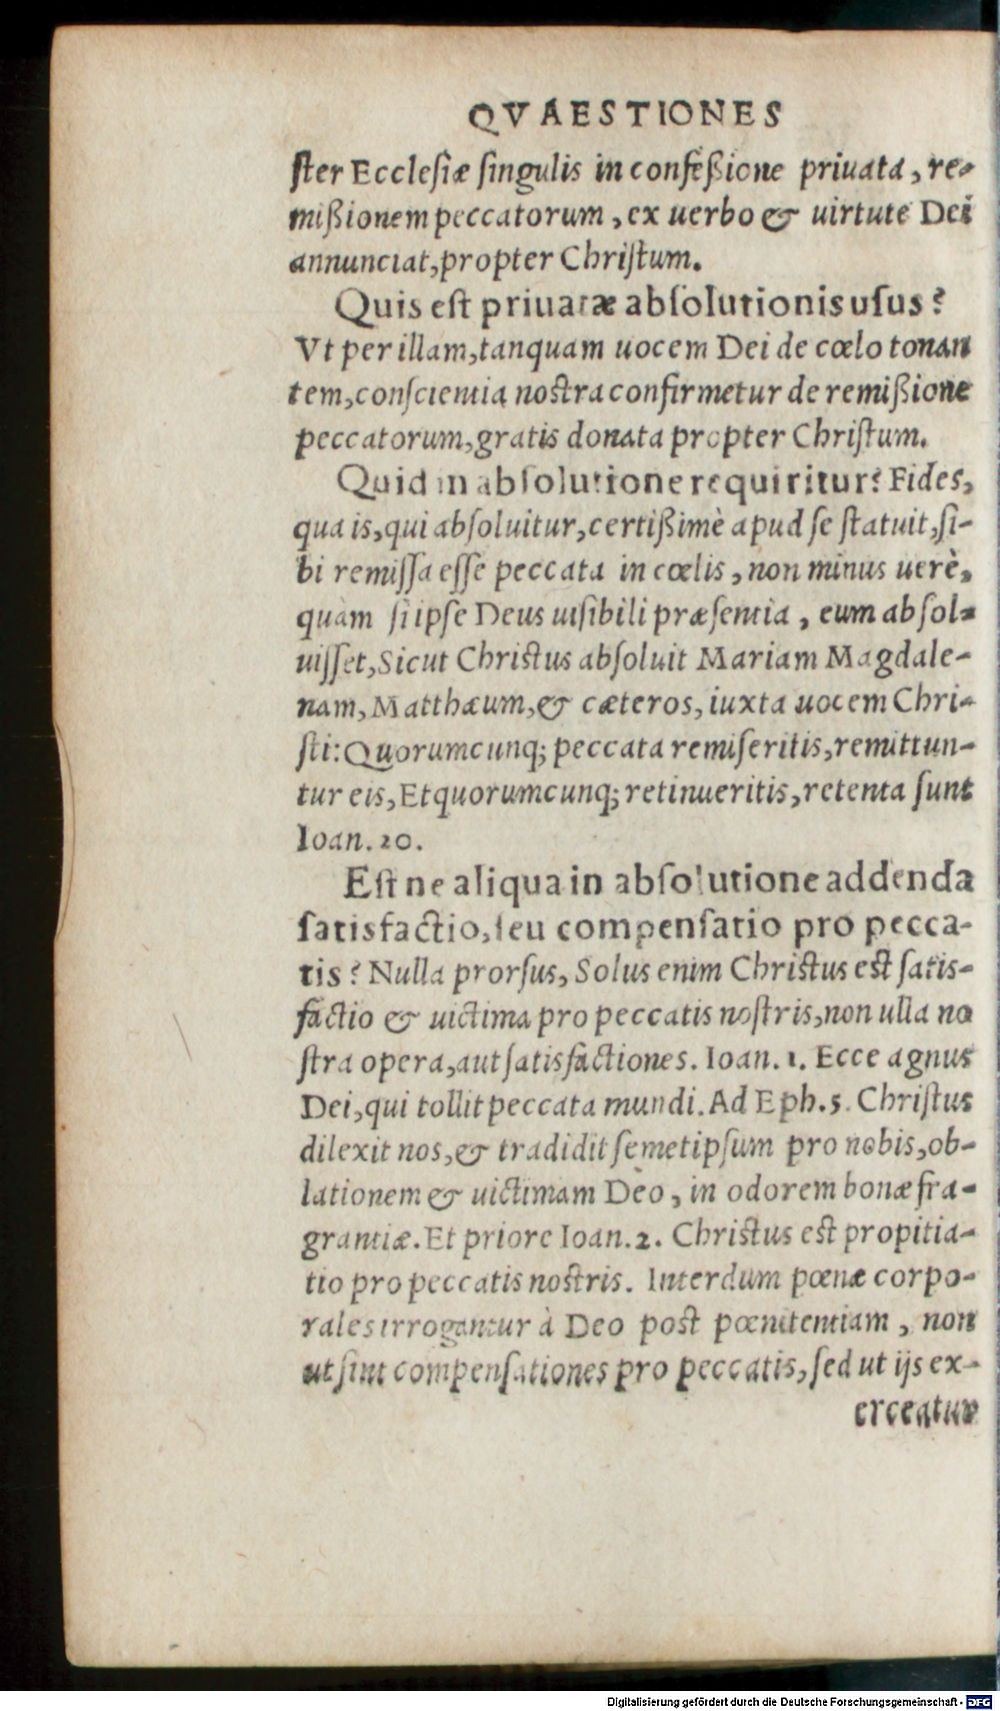 QVAESTIONES
ster Ecclesiæ singulis in confeßione priuata, re-
mißionem peccatorum, ex uerbo & uirtute Dei
annunciat, propter Christum.
Quis est priuatæ absolutionis usus?
Vt per illam, tanquam uocem Dei de cœlo tonan
tem, conscientia nostra confirmetur de remißione
peccatorum, gratis donata propter Christum.
Quid in absolutione requiritur? Fides,
qua is, qui absoluitur, certißimè apud se statuit, si-
bi remissa esse peccata in cœlis, non minus uerè,
quàm si ipse Deus uisibili præsentia, eum absol-
uisset, Sicut Christus absoluit Mariam Magdale-
nam, Matthæum, & cæteros, iuxta uocem Chri-
sti: Quorumcunq; peccata remiseritis, remittun-
tur eis, Et quorumcunq; retinueritis, retenta sunt
Ioan. 20.
Est ne aliqua in absolutione addenda
satisfactio, seu compensatio pro pecca-
tis? Nulla prorsus, Solus enim Christus est satis-
factio & uictima pro peccatis nostris, non ulla no
stra opera, aut satisfactiones. Ioan. 1. Ecce agnus
Dei, qui tollit peccata mundi. Ad Eph. 5. Christus
dilexit nos, & tradidit semetipsum pro nobis, ob-
lationem & uictimam Deo, in odorem bonæ fra-
grantiæ. Et priore Ioan. 2. Christus est propitia-
tio pro peccatis nostris. Interdum pœnæ corpo-
rales irrogantur à Deo post pœnitentiam, non
ut sint compensationes pro peccatis, sed ut ijs ex-
erceatur
Digitalisierung gefördert durch die Deutsche Forschungsgemeinschaft - DFG